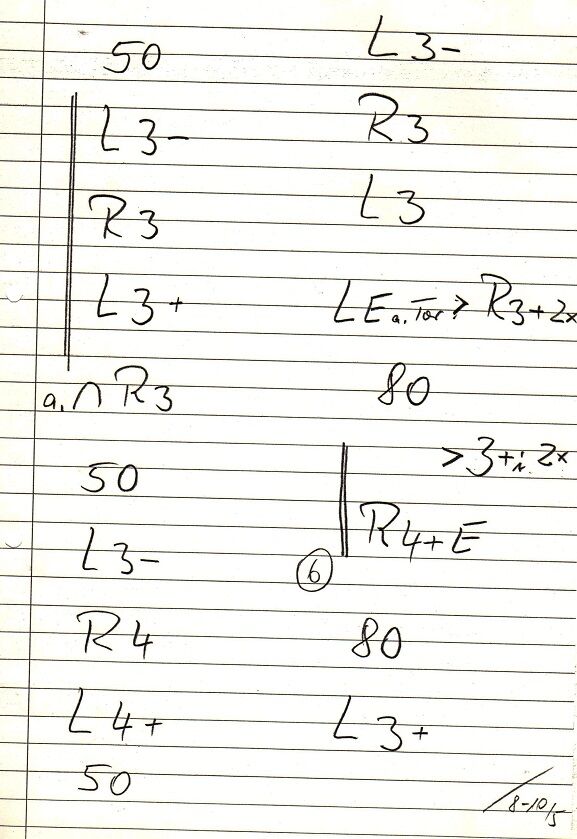 50
L3-
R3
L3+
a. ∩ R3
50
L3-
R4
L4+
50
L3-
R3
L3
LE a. Tor > R3+2x
80
>3+i. 2x
R4+E
6
80
L3+
8-10/5